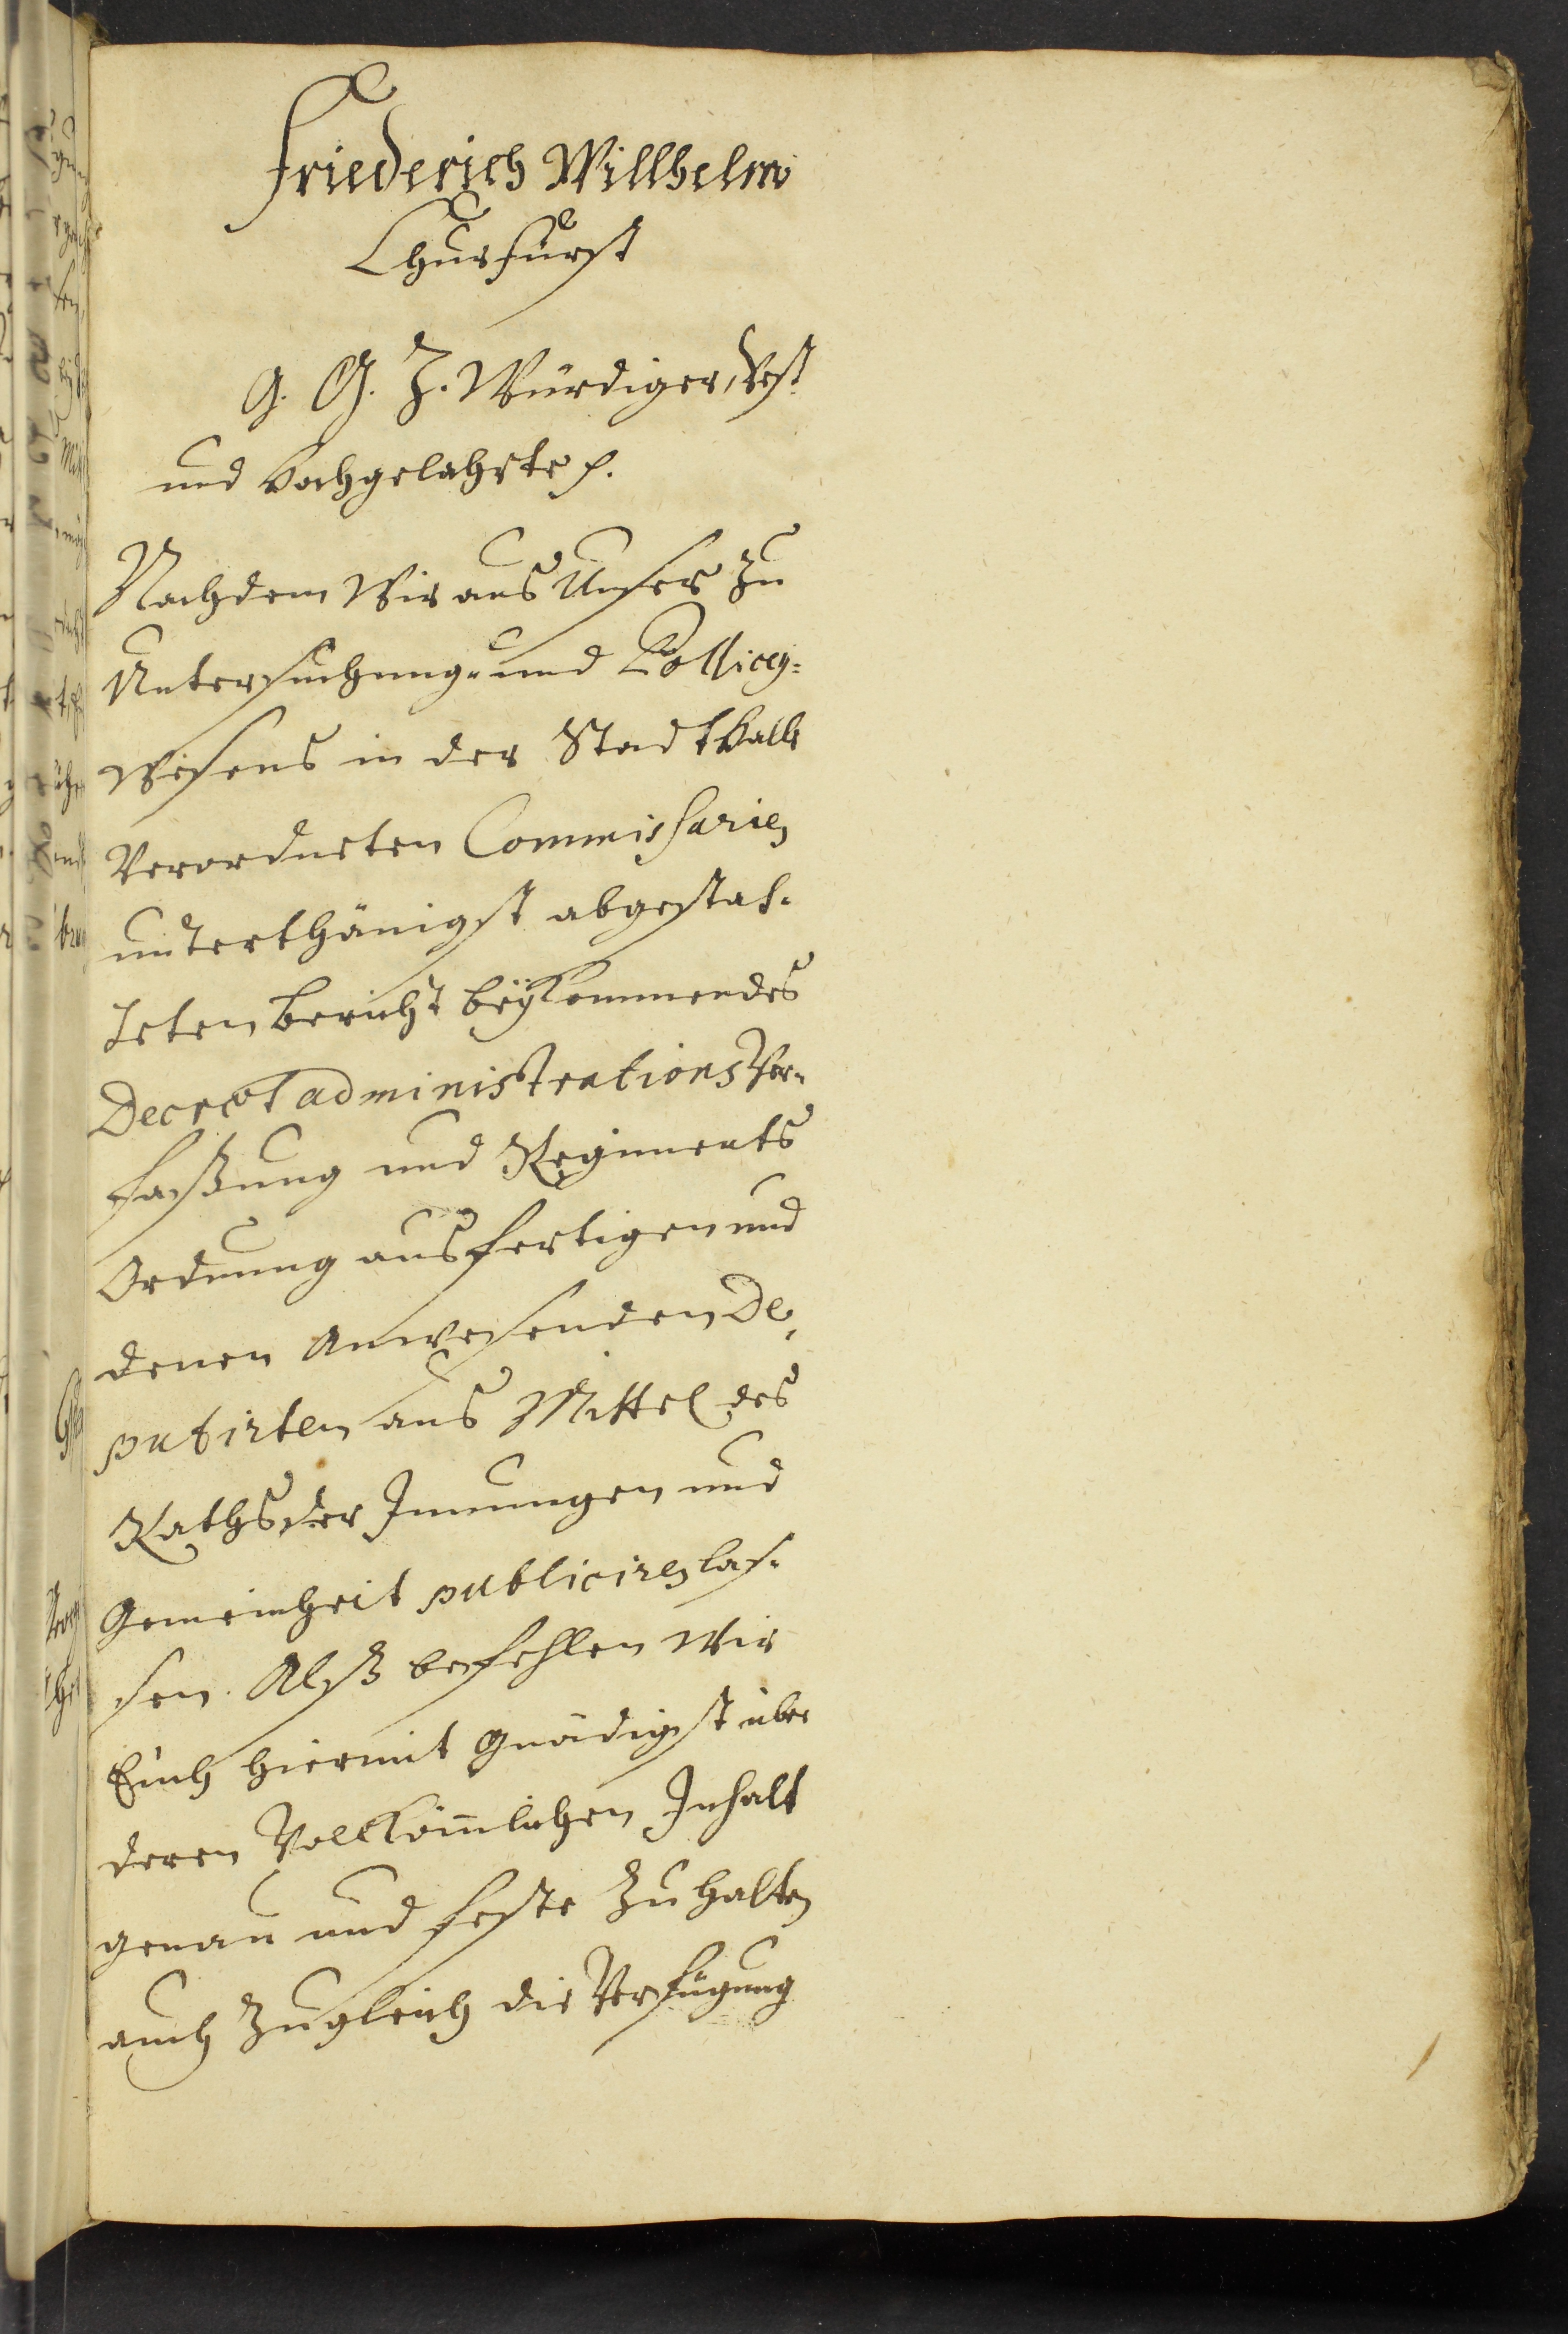 Friederich Willhelm
Churfürst
G. G. Z. Würdiger, Vest
und Hochgelahrte p.
Nachdem Wir aus Unser zu
Untersuchung- und Pollicey-
Wesens in der Stadt Halle
Verordneten Commissarien
unterthänigst abgestat-
teten bericht beÿkommendes
Decret administrations Ver-
faßung und Regiments
Ordnung ausfertigen und
denen Anwesenden De-
putirten aus Mittel des
Raths der Innungen und
Gemeinheit publiciren las-
sen. Alß befehlen Wir
Euch hiermit gnädigst über
deren Vollkom̅lichen Inhalt
genau und feste zu halten
auch zugleich die Verfügung